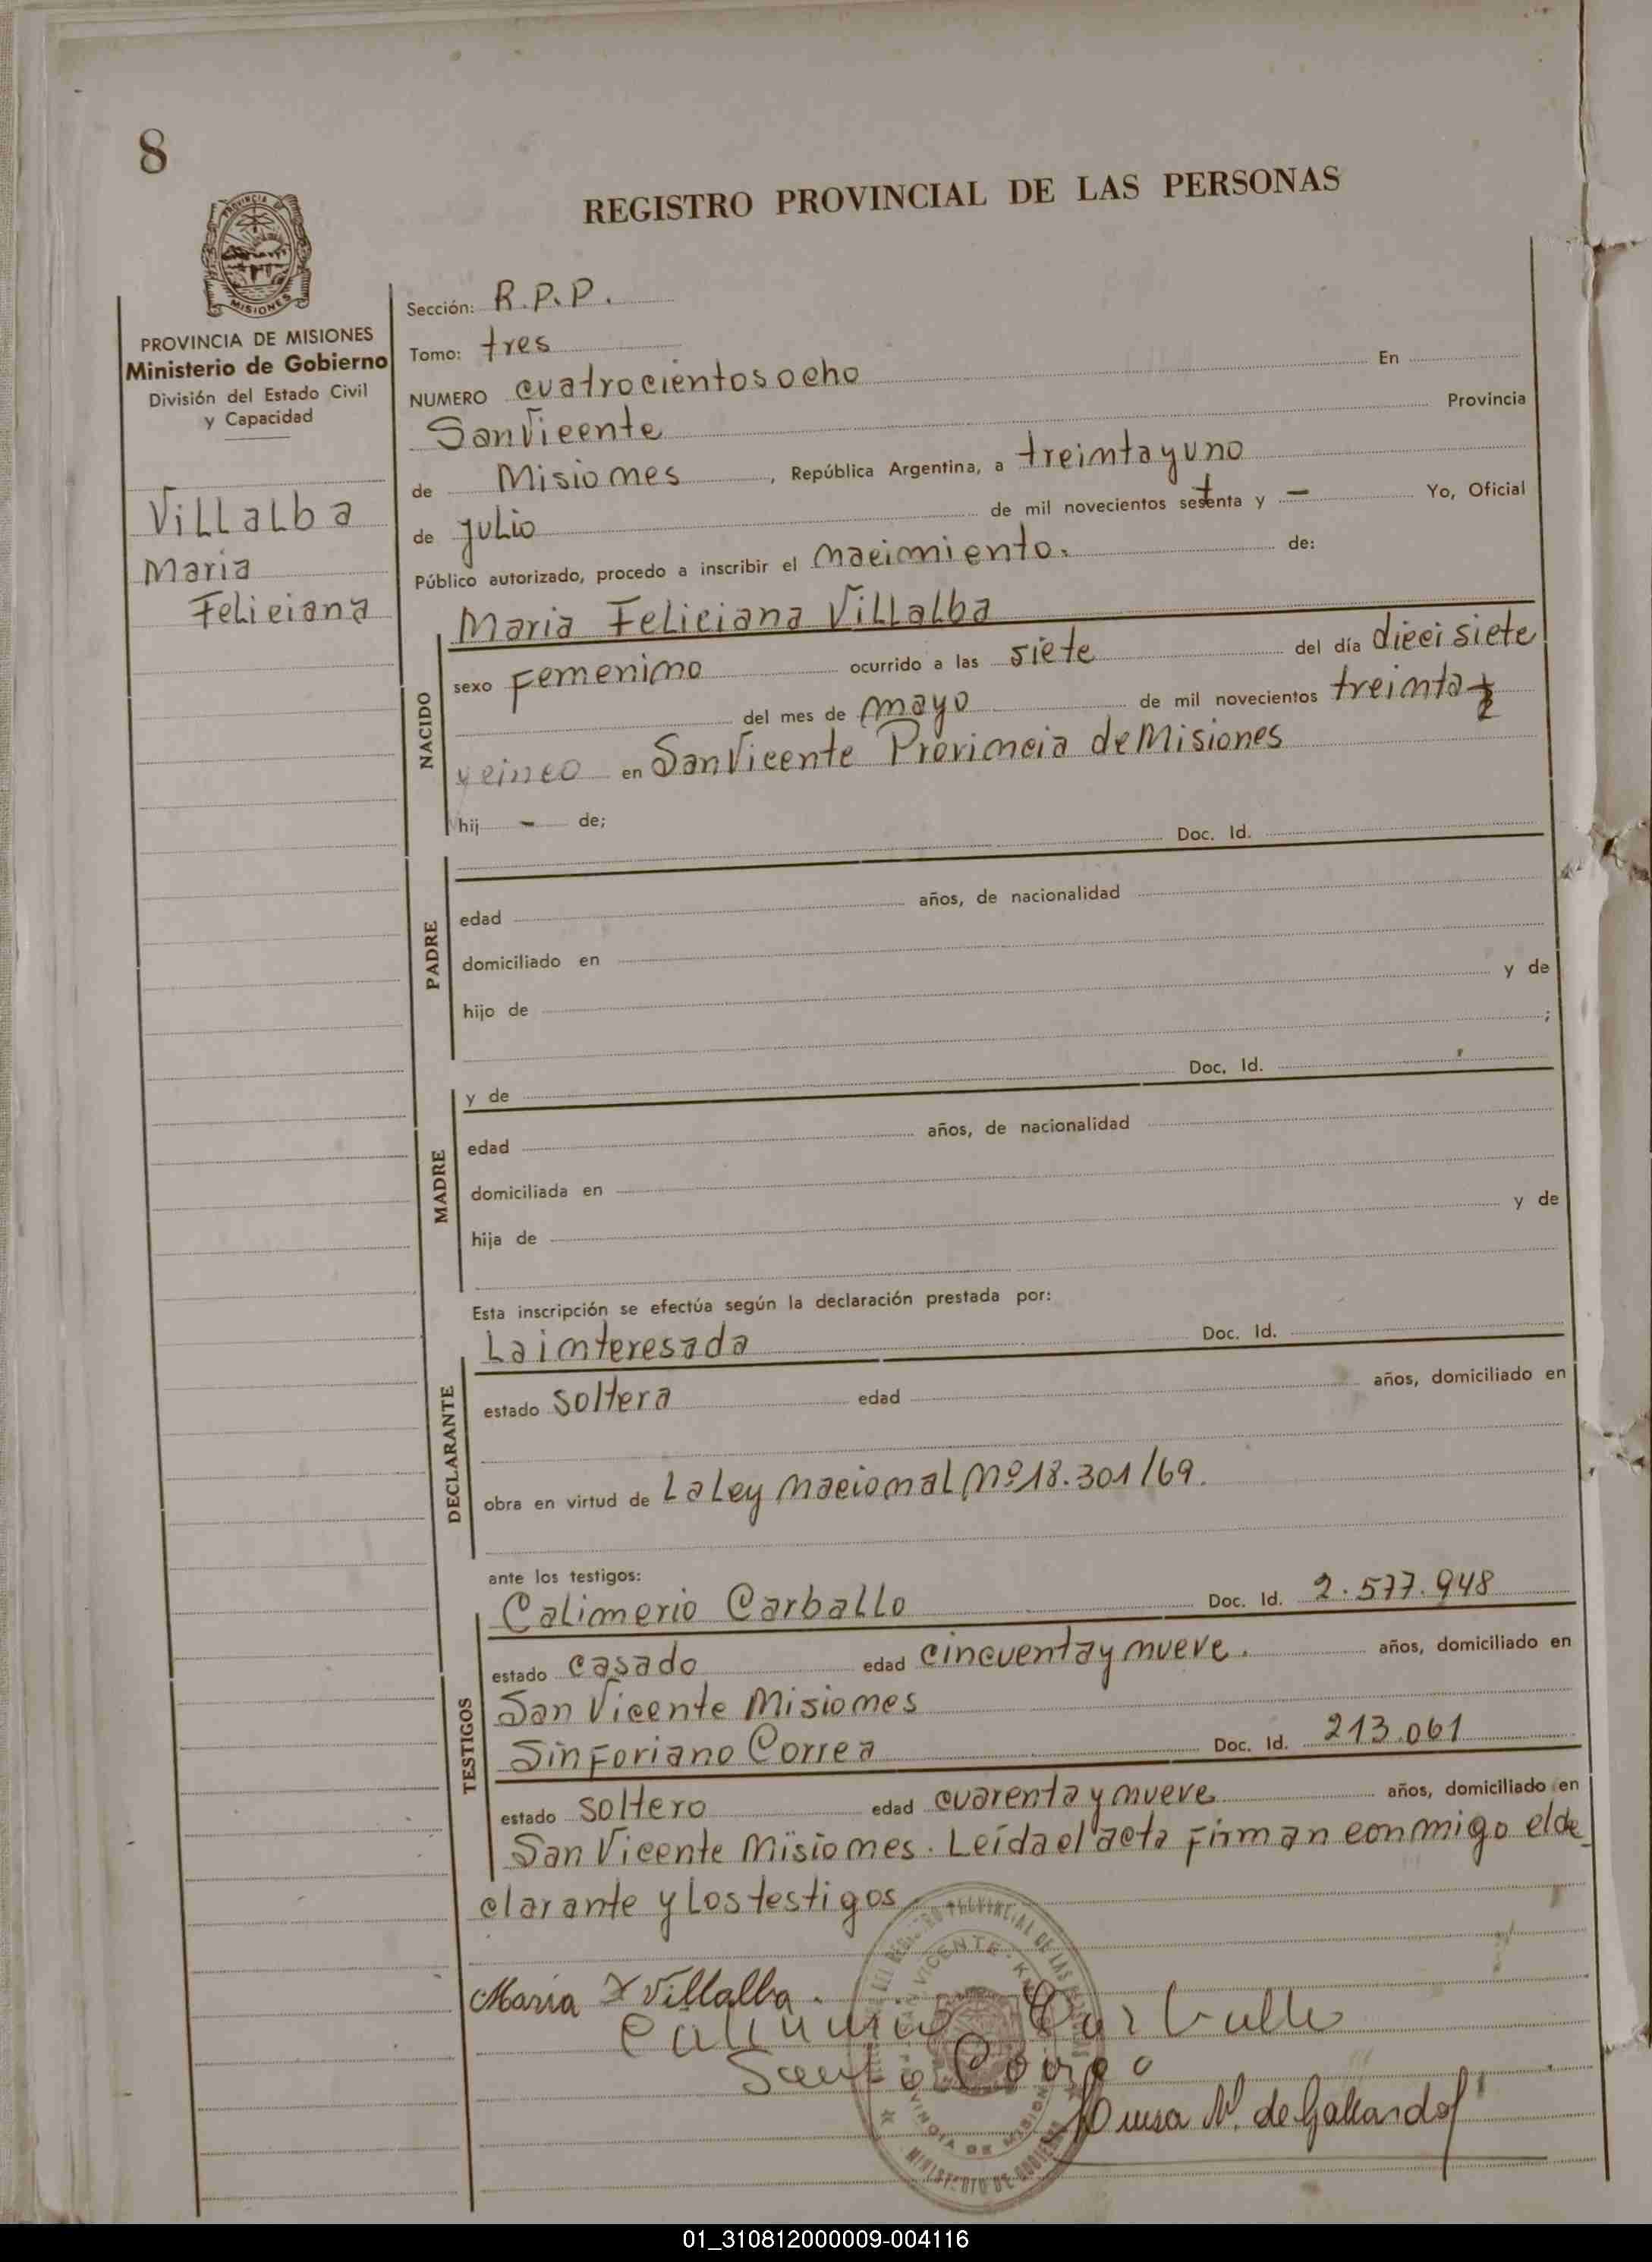 8
REGISTRO PROVINCIAL DE LAS PERSONAS
PROVINCIA DE MISIONES
PROVINCIA DE MISIONES
Ministerio de Gobierno
División del Estado Civil
y Capacidad
Villalba
Maria
Feliciana
Sección: R.P.P.
Tomo: tres
NUMERO cuatrocientos ocho En
San Vicente Provincia
de Misiones, República Argentina, a treinta y uno
de julio de mil novecientos setenta y - Yo, Oficial
Público autorizado, procedo a inscribir el nacimiento. de:
NACIDO
Maria Feliciana Villalba
sexo Femenino ocurrido a las siete del día dieci siete
del mes de mayo de mil novecientos treinta
y cinco en San Vicente Provincia de Misiones
hij - de;
PADRE
Doc. Id.
edad años, de nacionalidad
domiciliado en
hijo de y de
;
MADRE
y de Doc. Id.
edad años, de nacionalidad
domiciliada en
hija de y de
Esta inscripción se efectúa según la declaración prestada por:
DECLARANTE
La interesada Doc. Id.
estado soltera edad años, domiciliado en
obra en virtud de La Ley nacional Nº 18.301/69.
ante los testigos:
TESTIGOS
Calimerio Carballo Doc. Id. 2.577.948
estado casado edad cincuenta y nueve. años, domiciliado en
San Vicente Misiones
Sinforiano Correa Doc. Id. 213.061
estado soltero edad cuarenta y nueve años, domiciliado en
San Vicente Misiones. Leída el acta firman conmigo el de
clarante y los testigos
Maria F Villalba.
Carballo
Correa
N. de Gallardo
REGISTRO PROVINCIAL DE LAS
SAN VICENTE
PROVINCIA DE MISIONES
MINISTERIO DE GOBIERNO
01_310812000009-004116